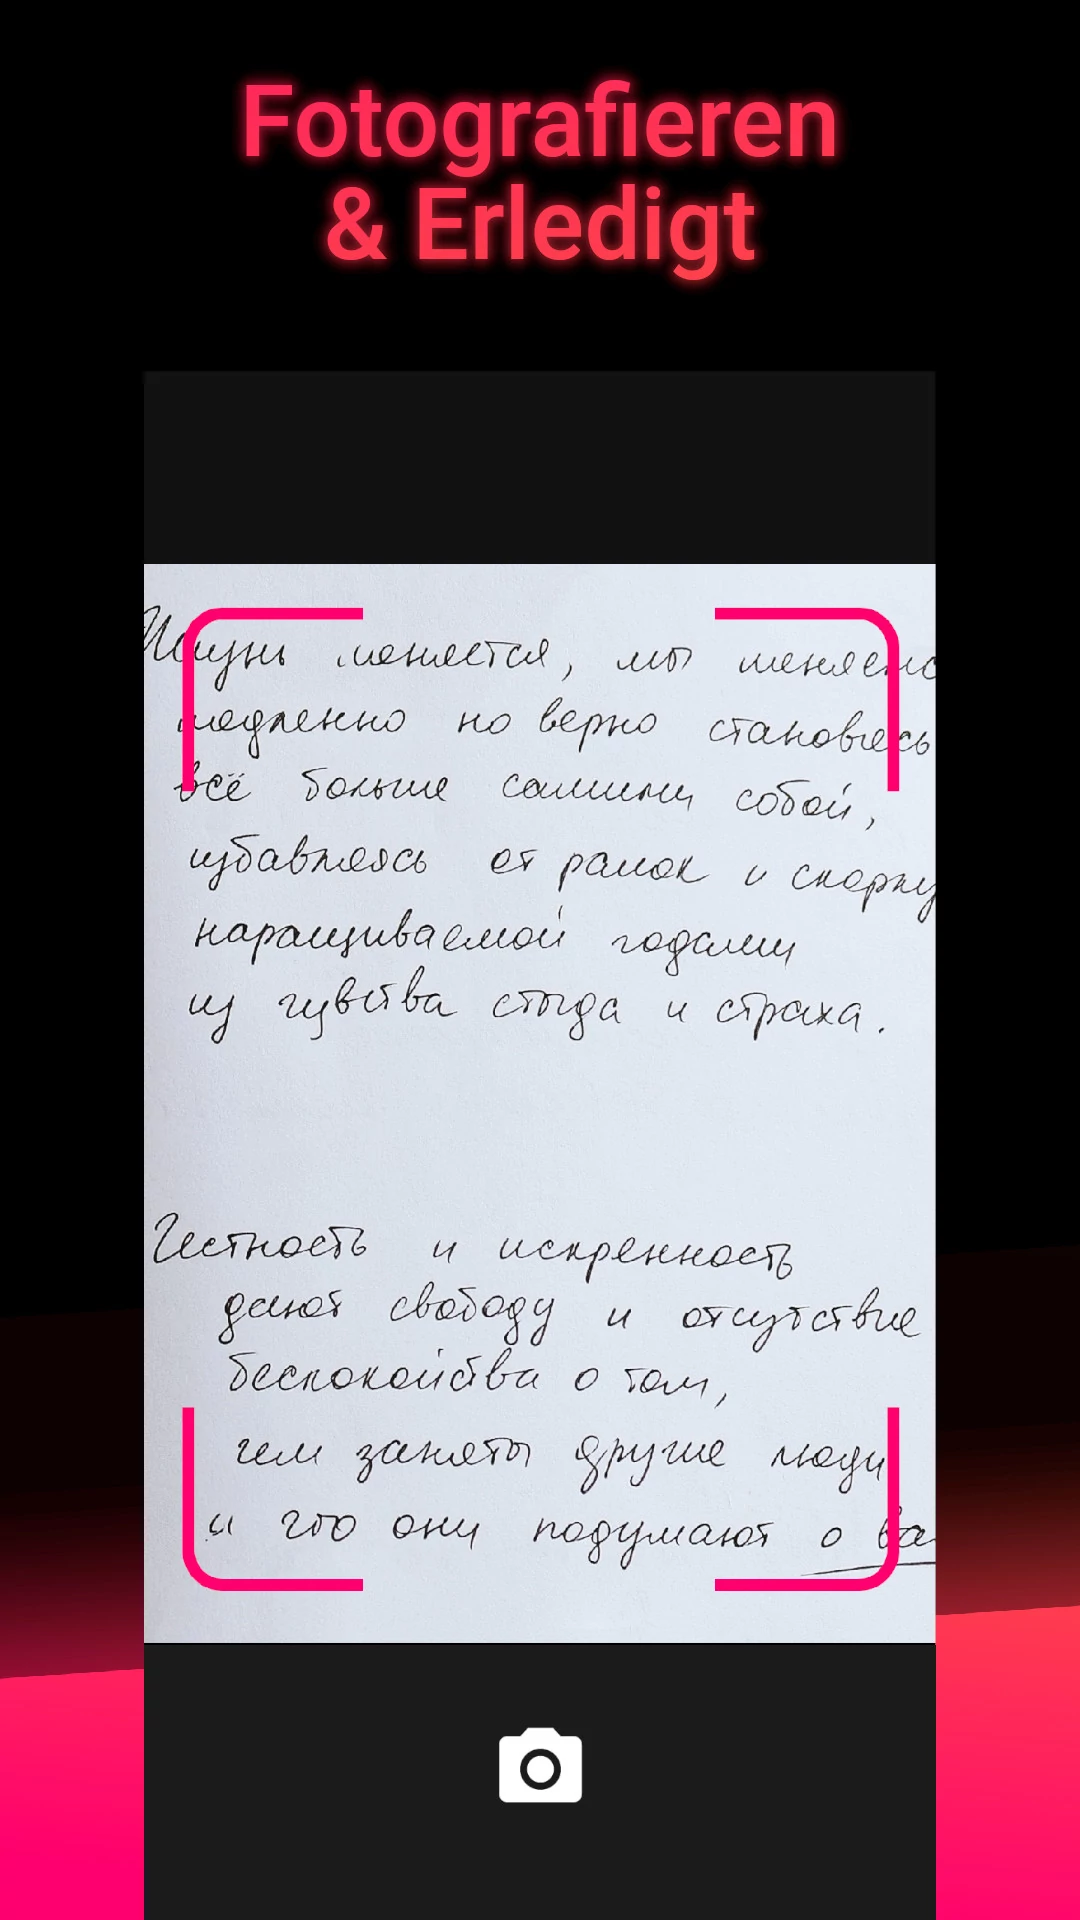 Fotografieren
& Erledigt
Жизнь меняется, мы меняемс
медленно но верно становясь
всё больше самими собой,
избавляясь от рамок и скорлу
наращиваемой годами
из чувства стыда и страха.
Честность и искренность
дают свободу и отсутствие
беспокойства о том,
чем заняты другие люди
и что они подумают о ва